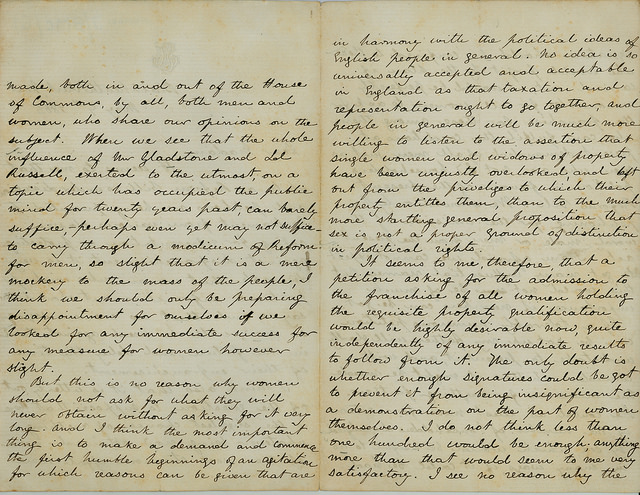 made, both in and out of the House
of Commons, by all, both men and
women, who share our opinions on the
subject. When we see that the whole
influence of Mr Gladstone and Ld
Russell, exerted to the utmost, on a
topic which has occupied the public
mind for twenty years past, can barely
suffice, – perhaps even yet may not suffice
to carry through a modicum of Reform
for men, so slight that it is a mere
mockery to the mass of the people, I
think we should only be preparing
disappointment for ourselves if we
looked for any immediate success for
any measure for women however
slight.
But this is no reason why women
should not ask for what they will
never obtain without asking for it very
long. And I think the most important
thing is to make a demand and commence
the first humble beginnings of an agitation
for which reasons can be given that are
in harmony with the political ideas of
English people in general. No idea is so
universally accepted and acceptable
in England as that taxation and
representation ought to go together, and
people in general will be much more
willing to listen to the assertion that
single women and widows of property
have been unjustly overlooked, and left
out from the privileges to which their
property entitles them, than to the much
more startling general proposition that
sex is not a proper ground of distinction
in political rights.
It seems to me, therefore, that a
petition asking for the admission to
the franchise of all women holding
the requisite property qualification
would be highly desirable now, quite
independently of any immediate results
to follow from it. The only doubt is
whether enough signatures could be got
to prevent it from being insignificant as
a demonstration on the part of women
themselves. I do not think less than
one hundred would be enough, anything
more than that would seem to me very
satisfactory. I see no reason why the